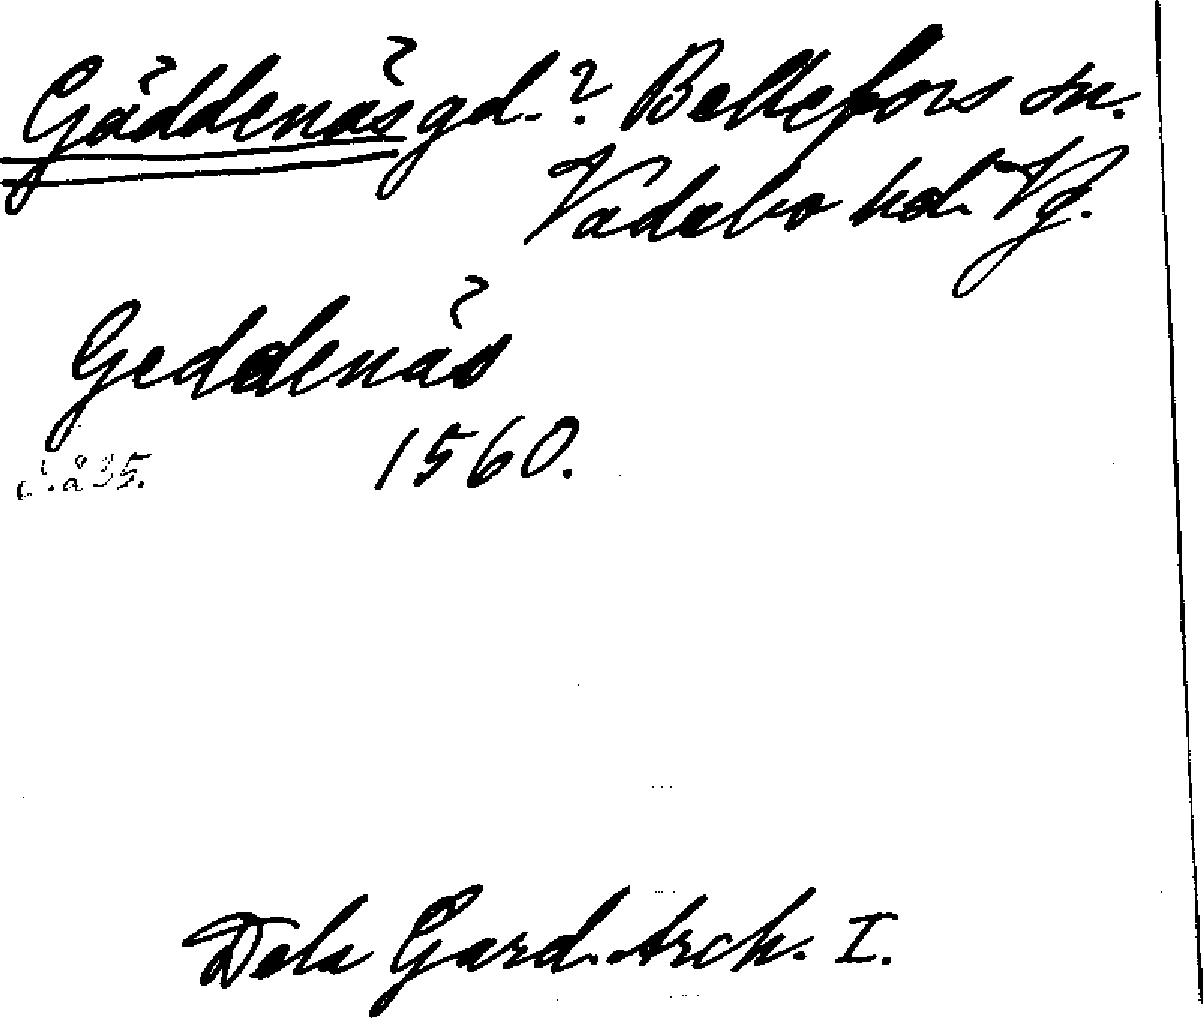 Gäddenäs gd.? Bellefors sn.
Vadsbo hd. Vg.
Geddenäs
1560.
s. 235.
Dela Gard. Arch. I.